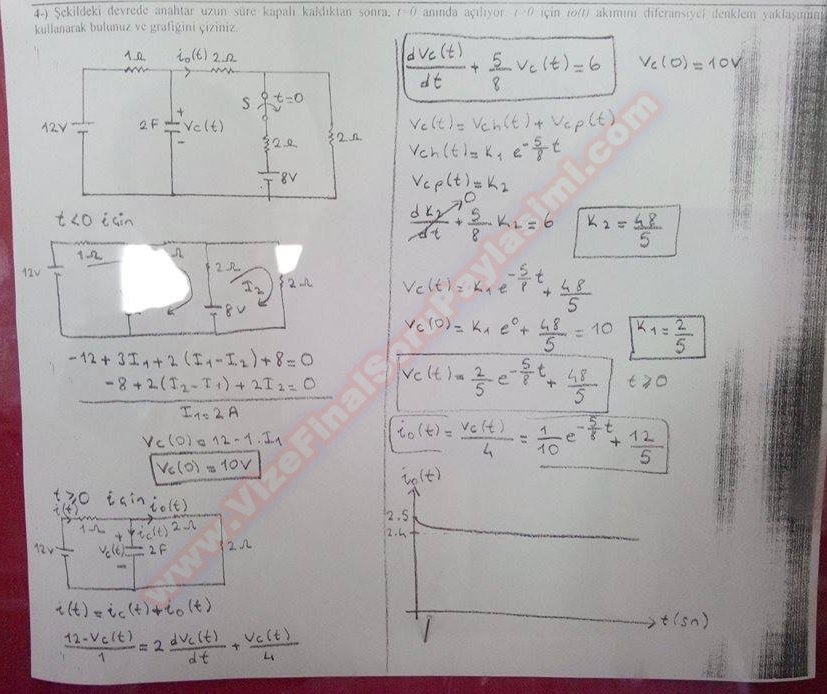 4-) Şekildeki devrede anahtar uzun süre kapalı kaldıktan sonra, t=0 anında açılıyor. t>0 için io(t) akımını diferansiyel denklem yaklaşımını
kullanarak bulunuz ve grafiğini çiziniz.
1Ω i₀(t) 2Ω
S t=0
12V 2F + Vc(t) - 2Ω 2Ω
8V
t<0 için
1Ω Ω
12V 2Ω I₂ 2Ω
8V
-12+3I₁+2(I₁-I₂)+8=0
-8+2(I₂-I₁)+2I₂=0
I₁=2A
Vc(0)=12-1.I₁
Vc(0)=10V
t≥0 için
i(t) 1Ω i₀(t) 2Ω
12V Vc(t) + - ic(t) 2F 2Ω
i(t)=ic(t)+i₀(t)
12-Vc(t)/1 = 2 dVc(t)/dt + Vc(t)/4
dVc(t)/dt + 5/8 Vc(t)=6 Vc(0)=10V
Vc(t)=Vch(t)+Vcp(t)
Vch(t)=K₁ e^-5/8 t
Vcp(t)=K₂
dK₂/dt 0 + 5/8 K₂=6 K₂=48/5
Vc(t)=K₁e^-5/8 t + 48/5
Vc(0)=K₁ e⁰+48/5=10 K₁=2/5
Vc(t)=2/5 e^-5/8 t + 48/5 t≥0
i₀(t)=Vc(t)/4=1/10 e^-5/8 t + 12/5
i₀(t)
2.5
2.4
t(sn)
www.VizeFinalSoruPaylasimi.com